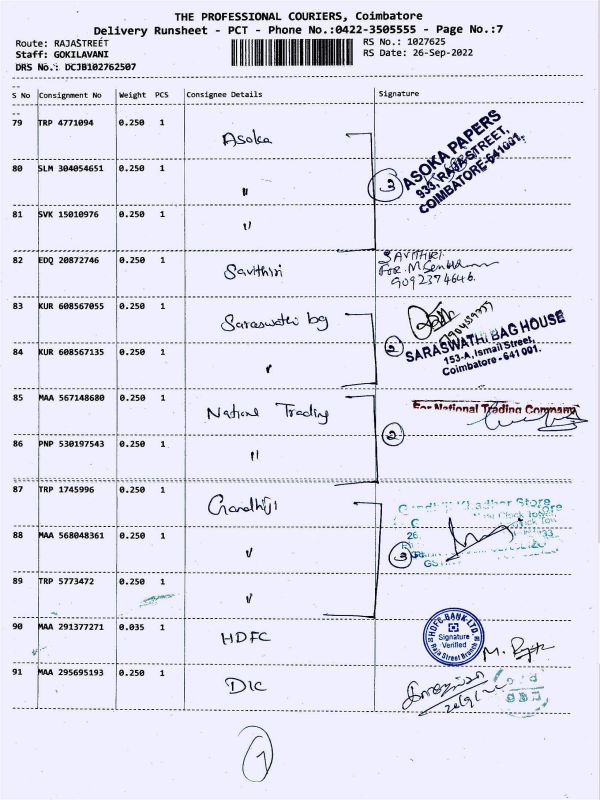 THE PROFESSIONAL COURIERS, Coimbatore
Delivery Runsheet - PCT - Phone No.:0422-3505555 - Page No.:7
Route: RAJASTREET
RS No.: 1027625
Staff: GOKILAVANI
RS Date: 26-Sep-2022
DRS No.: DCJB102762507
S No Consignment No Weight PCS Consignee Details Signature
79 TRP 4771094 0.250 1 Asoka
80 SLM 304054651 0.250 1 "
3
ASOKA PAPERS
933, RAJA STREET,
COIMBATORE-641001.
81 SVK 15010976 0.250 1 "
82 EDQ 20872746 0.250 1 Savithiri
SAVITHIRI
For. M. Senthil
9092374646.
83 KUR 608567055 0.250 1 Saraswathi bg
84 KUR 608567135 0.250 1 "
2
SARASWATHI BAG HOUSE
153-A, Ismail Street,
Coimbatore - 641 001.
85 MAA 567148680 0.250 1 National Trading
For National Trading Company
86 PNP 530197543 0.250 1 "
2
87 TRP 1745996 0.250 1 Gandhiji
Gandhiji Khadhar Store
88 MAA 568048361 0.250 1 "
3
89 TRP 5773472 0.250 1 "
90 MAA 291377271 0.035 1 HDFC
HDFC BANK LTD
Signature
Verified
Raja Street Branch
91 MAA 295695193 0.250 1 DIC
7